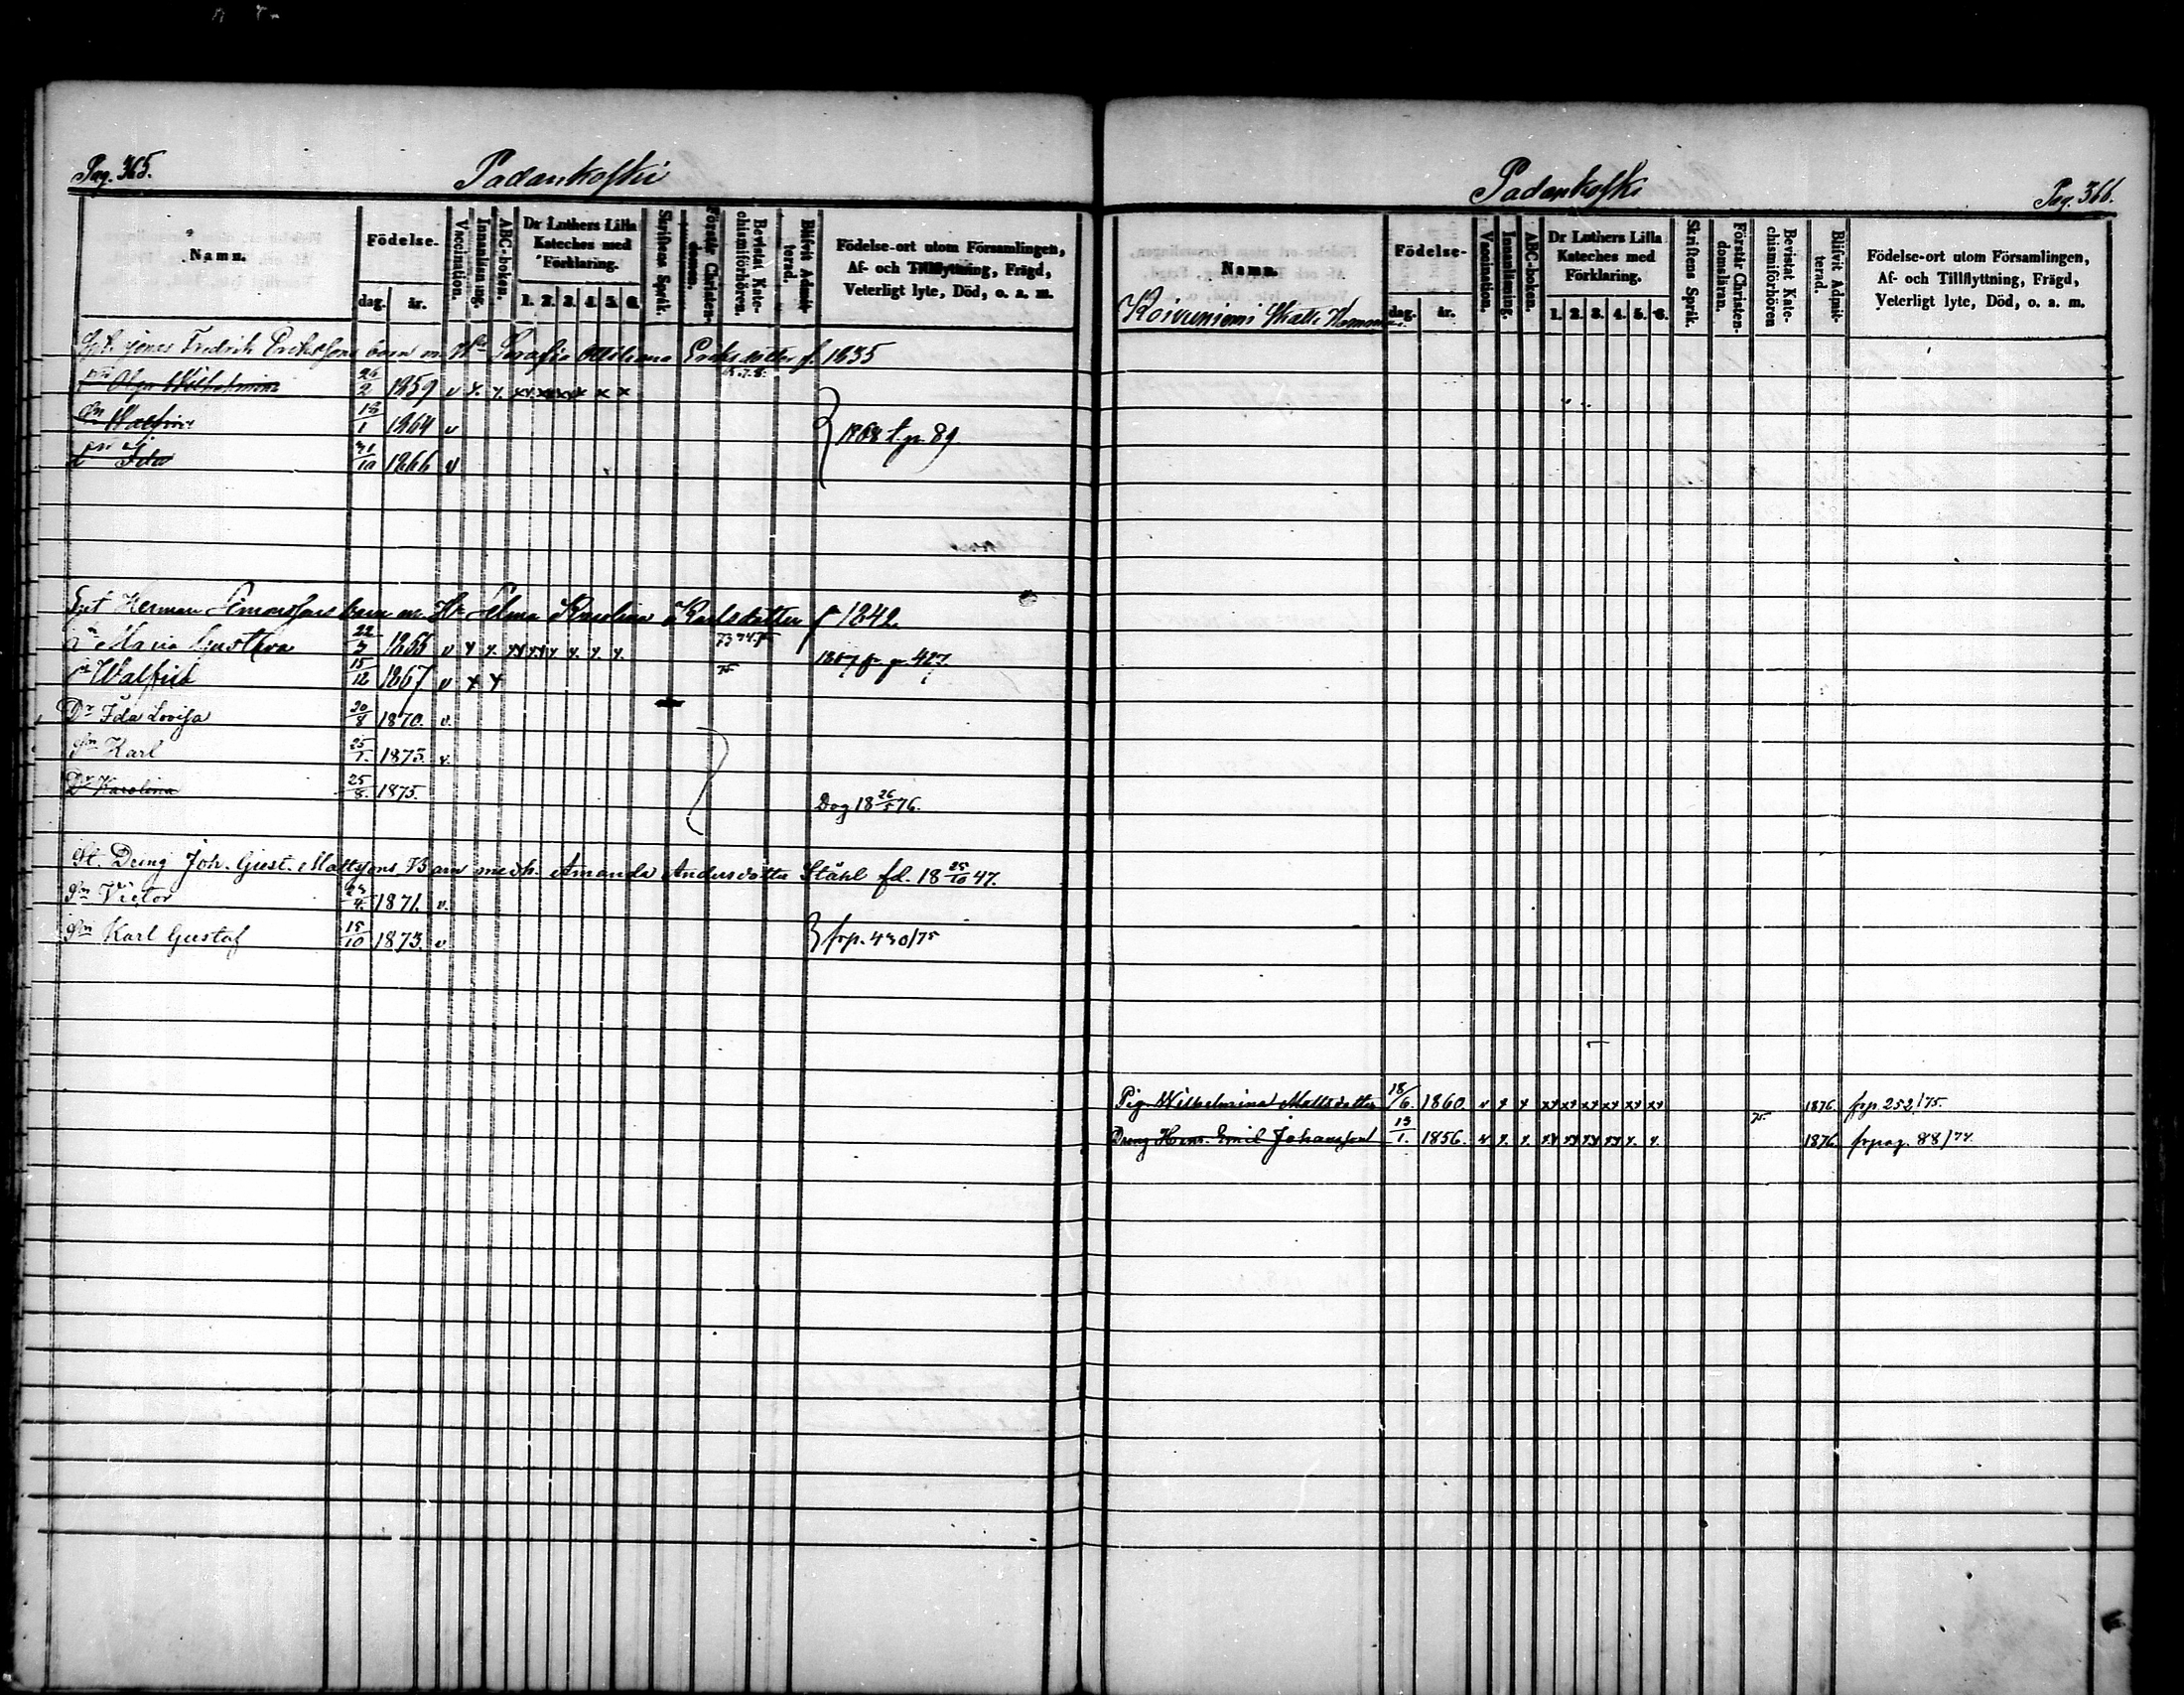 Pag. 365.
Padankoski
Namn.
Födelse-
dag.
år.
Vaccination.
Innanläsning.
ABC-boken.
Dr Luthers Lilla
Kateches med
Förklaring.
1. 2. 3. 4. 5. 6.
Skriftens Språk.
Förstår Christen-
domen.
Bevistat Kate-
chismiförhören.
Blifvit Admit-
terad.
Födelse-ort utom Församlingen,
Af- och Tillflyttning, Frägd,
Veterligt lyte, Död, o. a. m.
Fredrik Erikssons barn m. Hu Serafia Ottiliana Eriksdotter f. 1835
Olga Wilhelmina 26/2 1859 v x x xx xx xx x x x
Sn 13/1 1864 v
1868 t. p. 89
Ida 31/10 1866 v
Herman Simonssons barn m. Hu Selma Karolina Karlsdotter f 1842.
Dr Maria Gustava 22/3 1865 v x x xx xx x x. x. x. 73 74 75
1867 fr p. 427
Sn Walfrid 15/12 1867 v x x 75
Dr Ida Lovisa 20/8 1870. v.
Sn Karl 25/1. 1873. v.
Dr Karolina 25/8. 1875.
Dog 18 26/5 76.
St. Dreng Joh. Gust. Mattssons Barn med h. Amanda Andersdotter Ståhl fd. 18 25/10 47.
Sn Victor 23/4. 1871. v.
Sn Karl Gustaf 15/10 1873. v. frp. 430/75
Padankoski
Pag. 366.
Namn.
Födelse-
dag.
år.
Vaccination.
Innanläsning.
ABC-boken.
Dr Luthers Lilla
Kateches med
Förklaring.
1. 2. 3. 4. 5. 6.
Skriftens Språk.
Förstår Christen-
domsläran.
Bevistat Kate-
chismiförhören
Blifvit Admit-
terad.
Födelse-ort utom Församlingen,
Af- och Tillflyttning, Frägd,
Veterligt lyte, Död, o. a. m.
Koivuniemi Skatte Hemman.
Pig. Wilhelmina Mattsdotter 18/6. 1860. v x x xx xx xx xx xx xx 75 1876 frp. 252/75.
Dreng Herm. Emil Johansson 13/1. 1856. v x. x. xx xx xx xx x. x. 1876 frpag. 88/74.